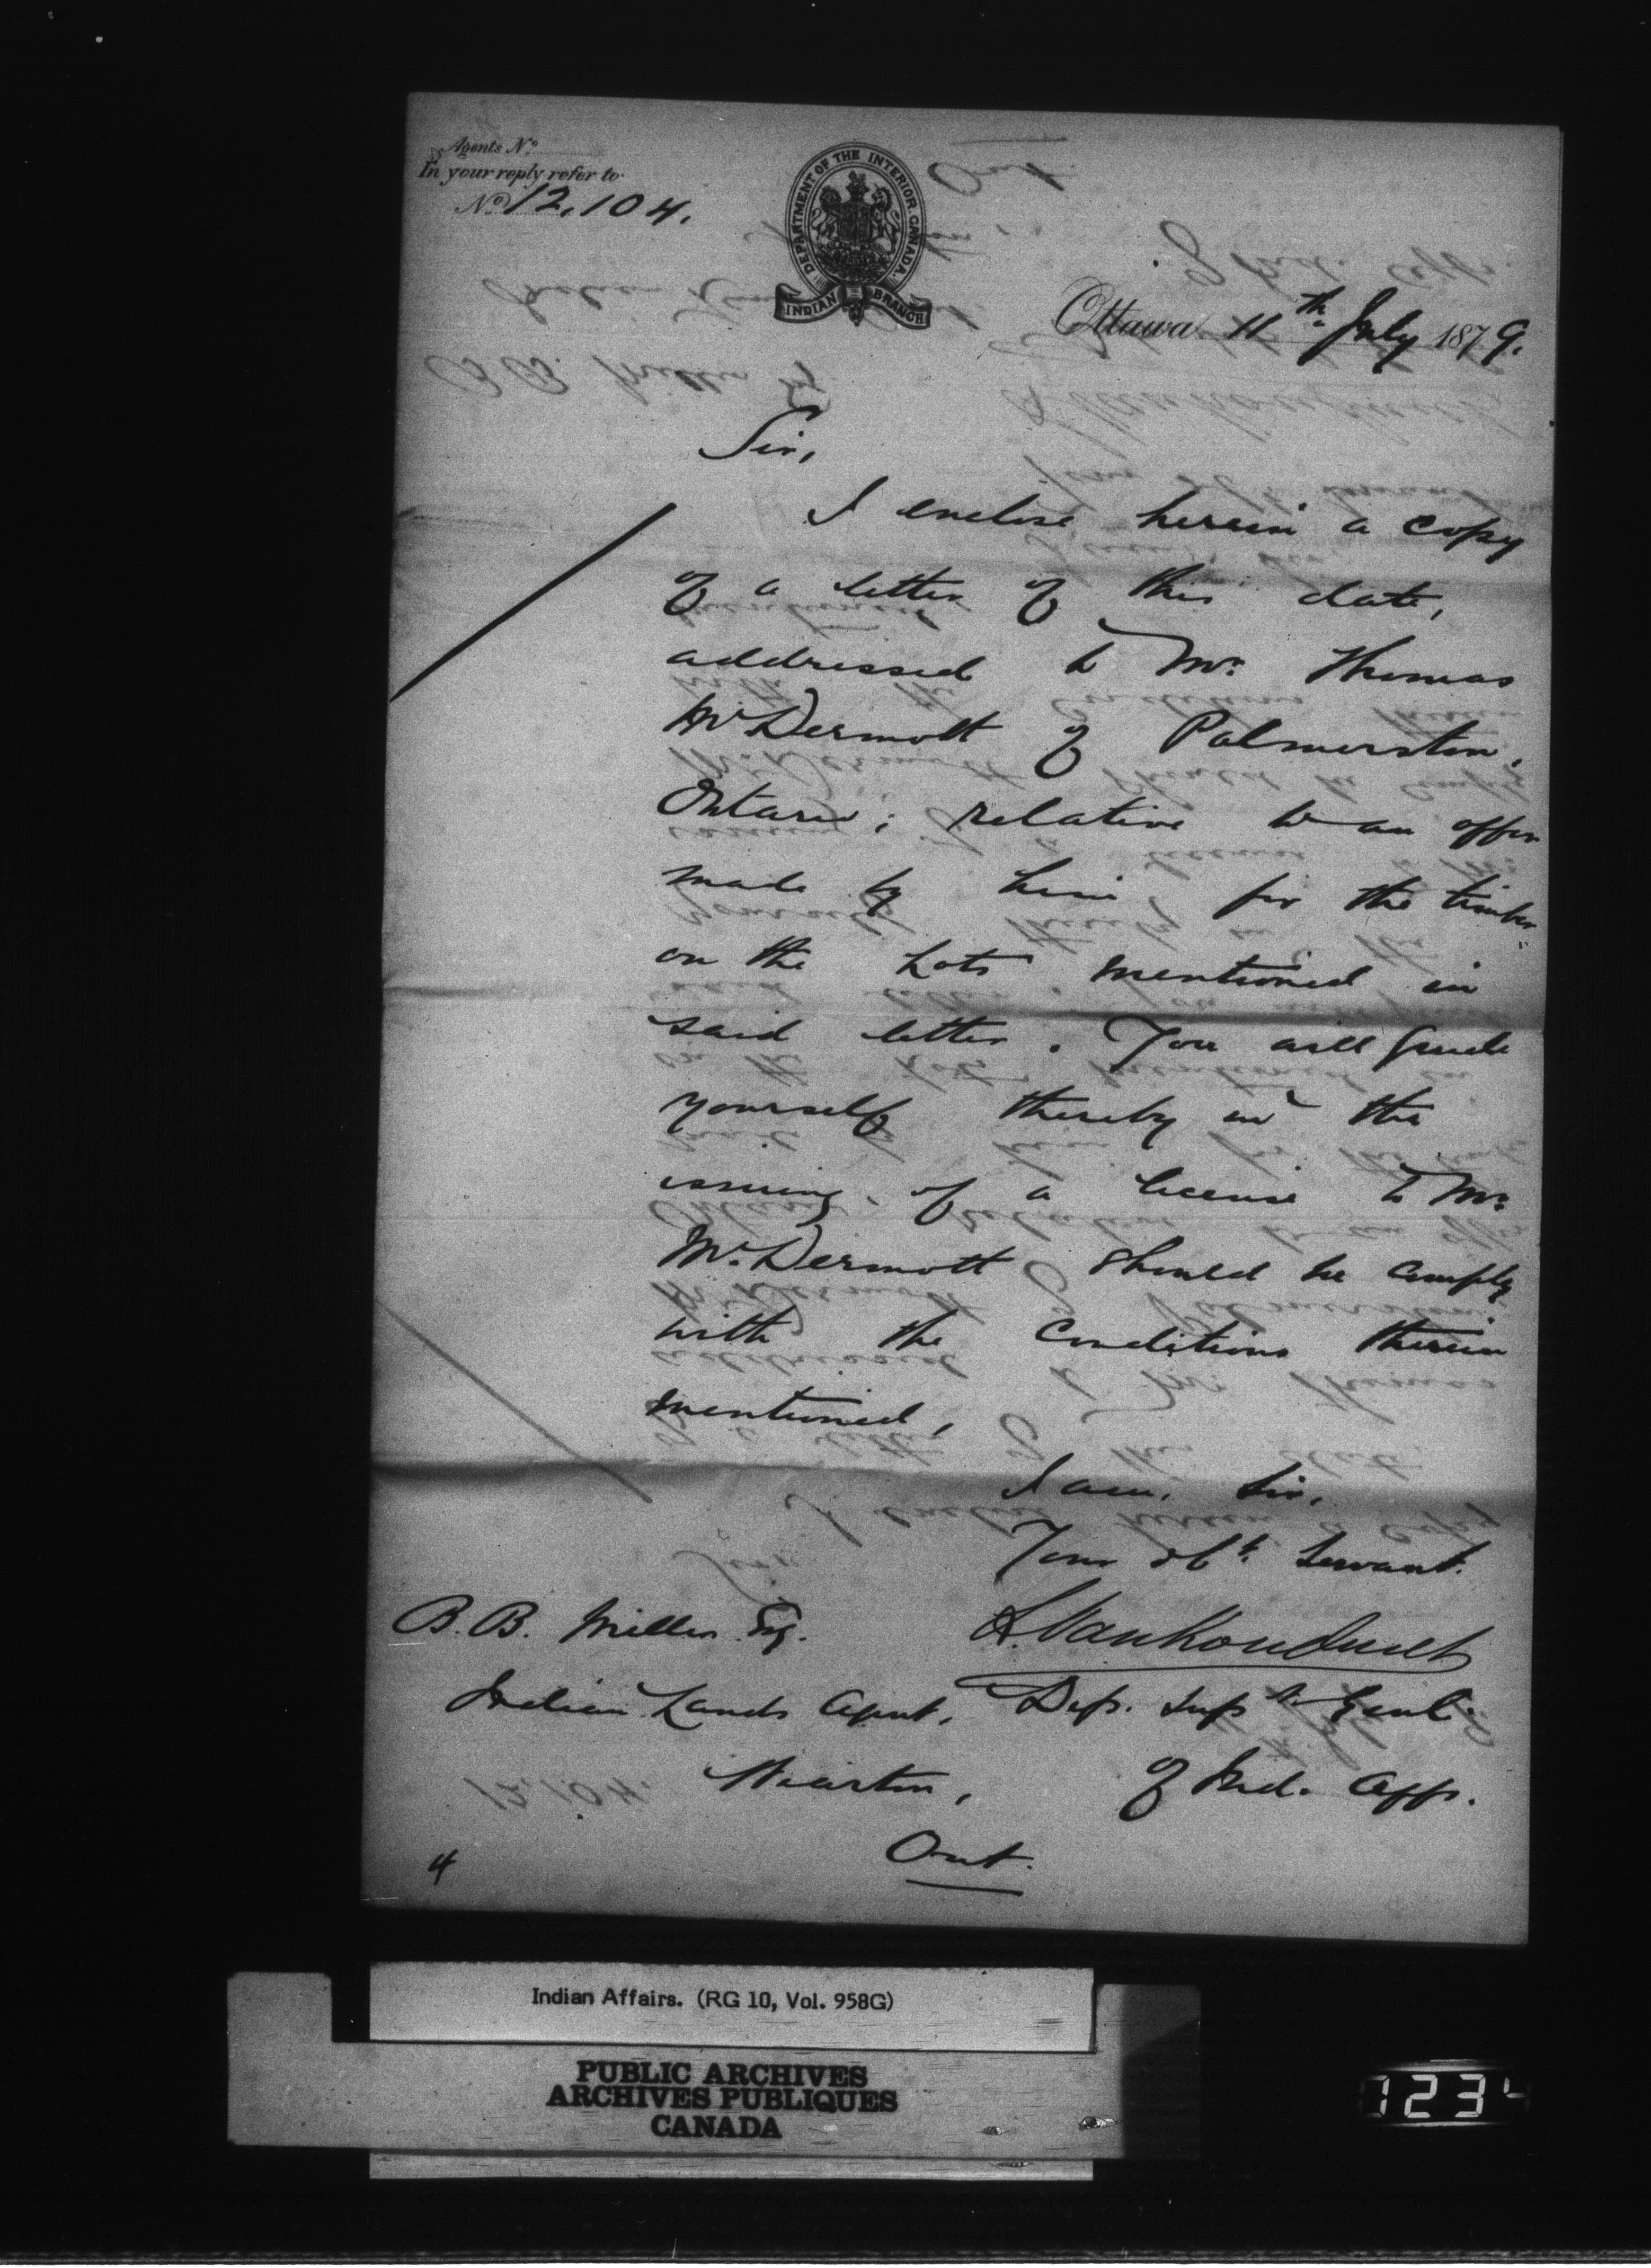 Agents No
In your reply refer to
No 12,104.
DEPARTMENT OF THE INTERIOR. CANADA.
INDIAN BRANCH
Ottawa 11th July 1879.
Sir,
I enclose herein a copy
of a letter of this date,
addressed to Mr. Thomas
McDermott of Palmerston,
Ontario; relative to an offer
made by him for the timber
on the Lots mentioned in
said letter. You will guide
yourself thereby in the
issuing of a license to Mr.
McDermott should he comply
with the conditions therein
mentioned,
I am, Sir,
Your obt. Servant.
L. Vankoughnet
B. B. Miller Esq.
Dep. Supt. Genl.
Indian Lands Agent,
of Ind. Affs.
Wiarton,
Ont.
4
Indian Affairs. (RG 10, Vol. 958G)
PUBLIC ARCHIVES
ARCHIVES PUBLIQUES
CANADA
1234